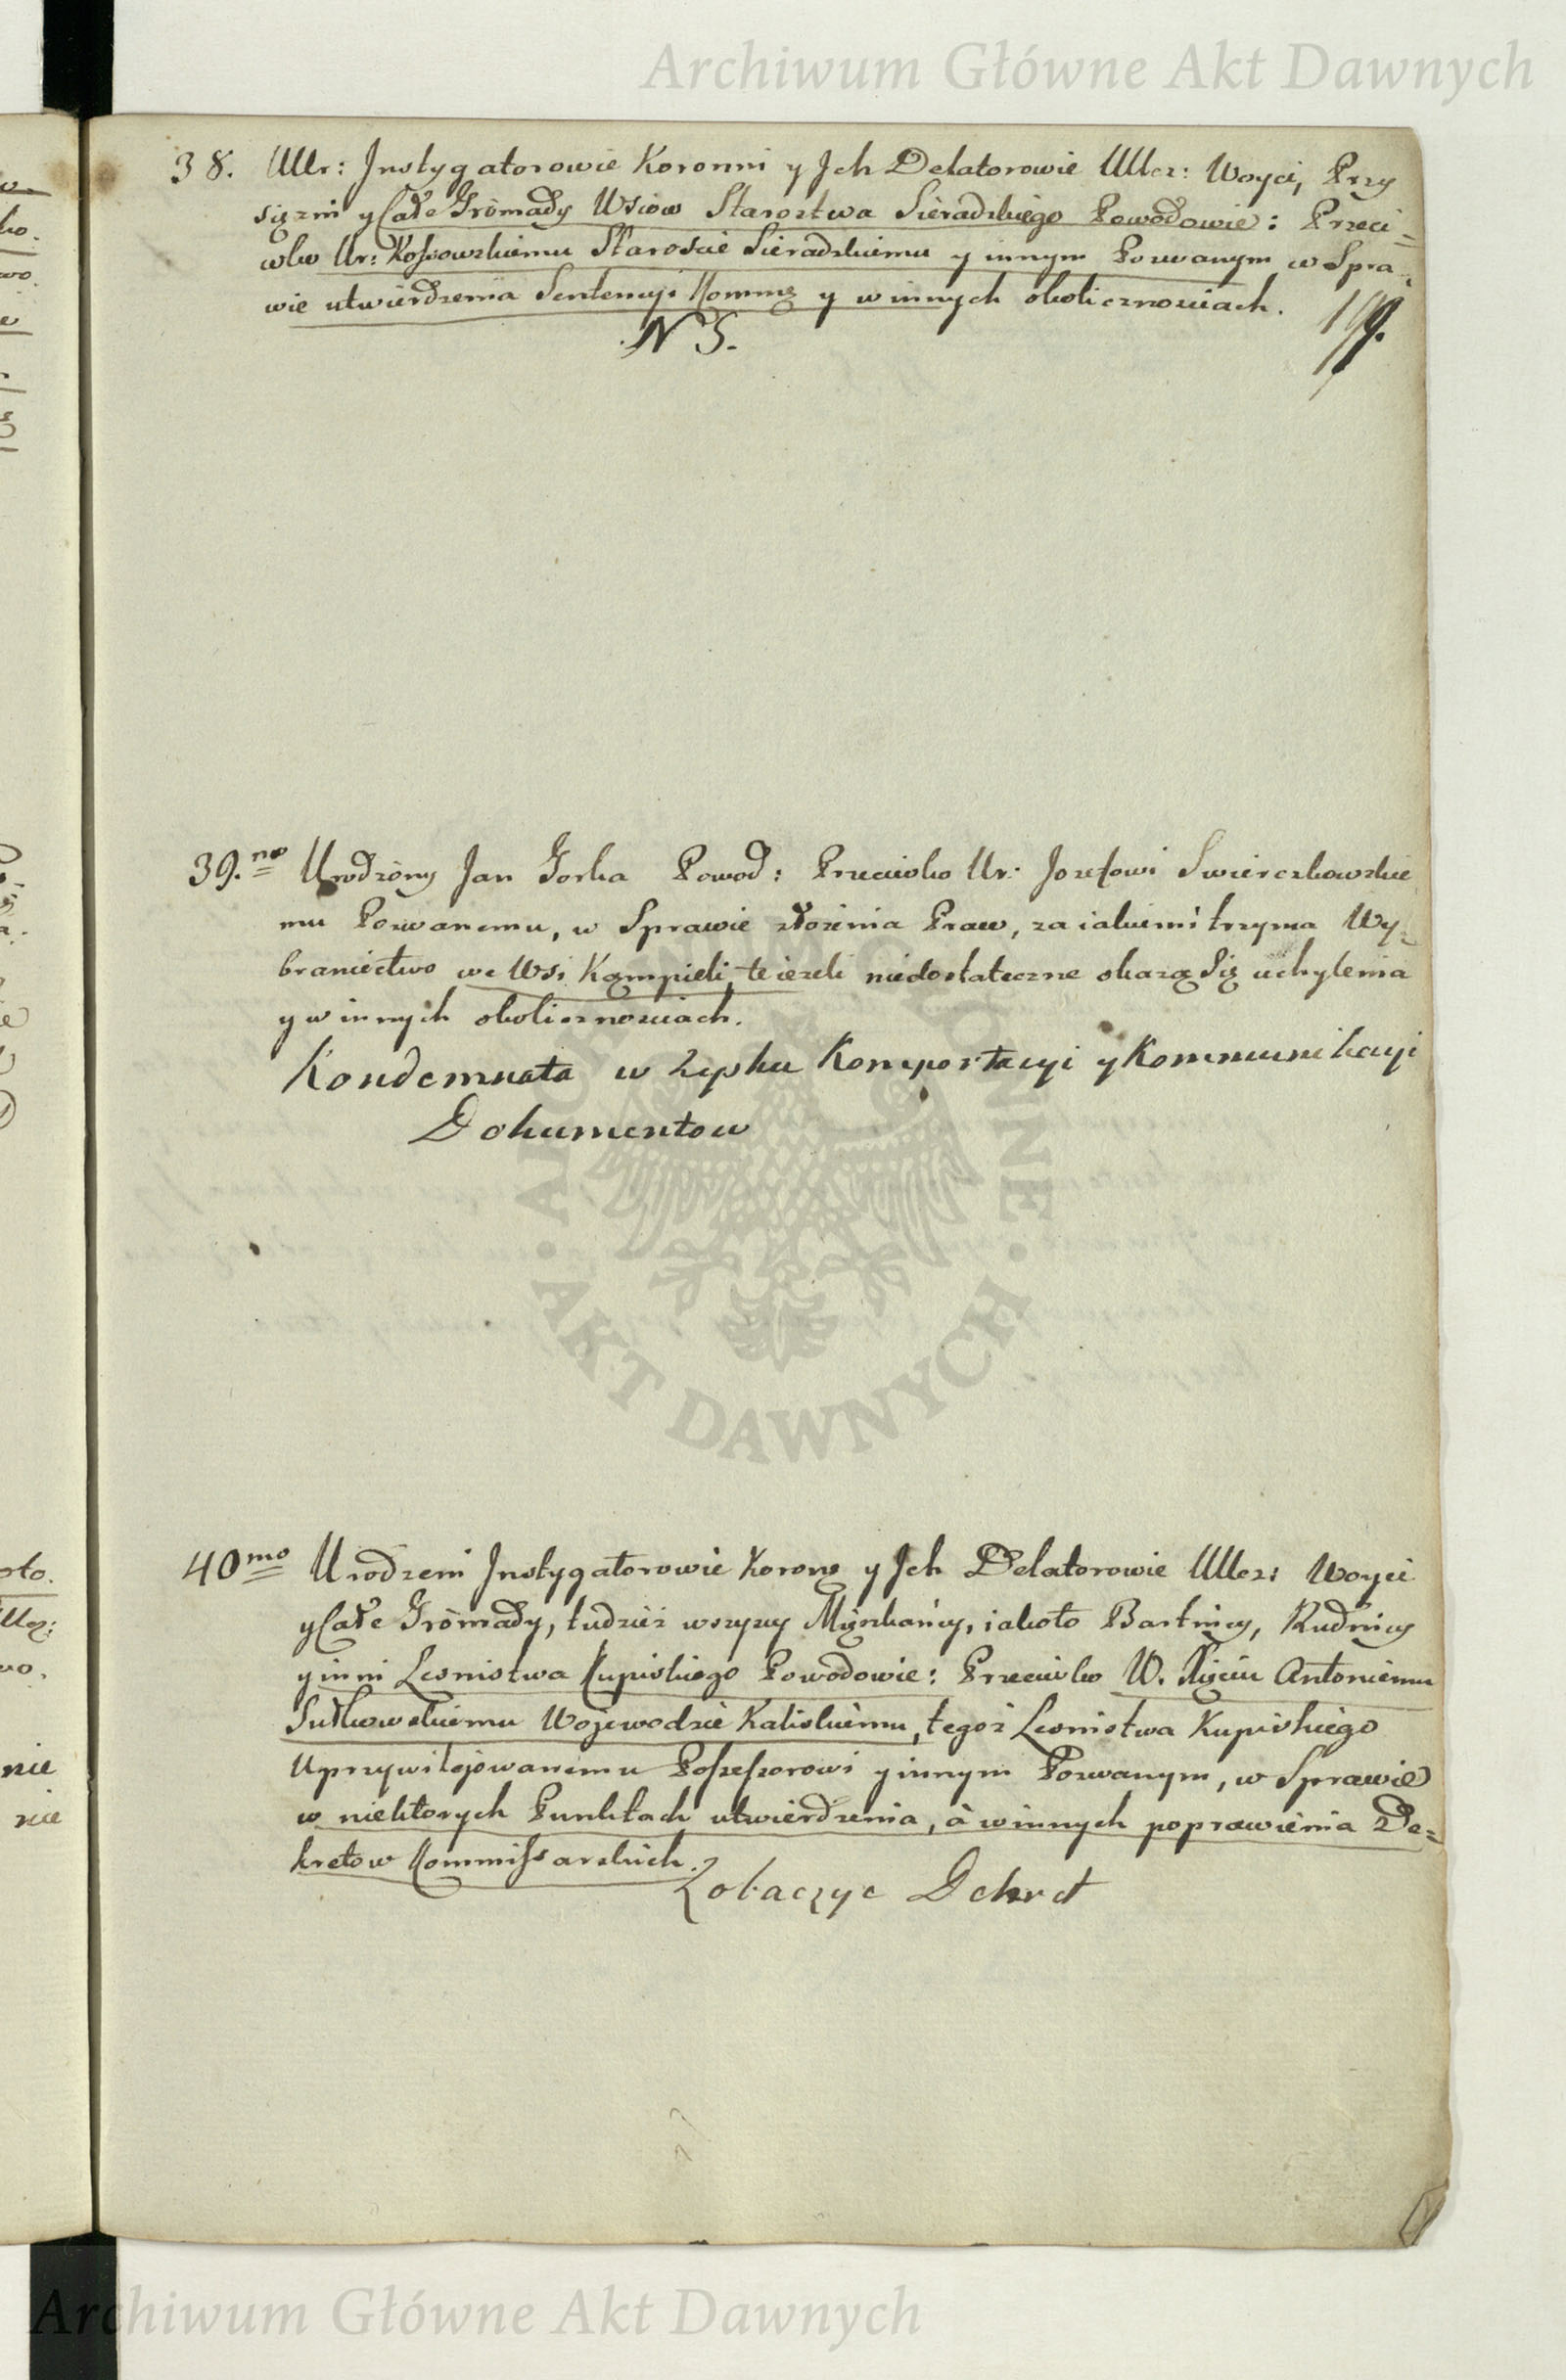 Archiwum Główne Akt Dawnych
38. UUr: Jnstygatorowie Koronni y Jch Delatorowie UUcz: Woyci, Przy
sięzni y Całe Gromady Wsiow Starostwa Sieradzkiego Powodowie: Przeci=
wko Ur: Kossowskiemu Staroscie Sieradzkiemu y innym Pozwanym w Spra=
wie utwierdzenia Sentencyi Kommĕ y w innych okolicznosciach.
N S.
39.no Urodzony Jan Gorka Powod: Przeciwko Ur: Jozefowi Swierczkowskie
mu Pozwanemu, w Sprawie złożenia Praw, za iakiemi trzyma Wy=
braniectwo we Wsi Kąmpieli, te ieżeli niedostateczne okażą się uchylenia
y w innych okolicznosciach.
Kondemnata w Zysku Komportacyi y Kommunikacyi
Dokumentow
40mo Urodzeni Jnstygatorowie Koronĕ y Jch Delatorowie UUcz: Woyci
y Całe Gromady, tudzież wszyscy Mięszkańcy, iakoto Bartnicy, Rudnicy
y inni Lesnistwa Kupiskiego Powodowie: Przeciwko W. Xięciu Antoniemu
Sułkowskiemu Wojewodzie Kaliskiemu, tegoż Lesnistwa Kupiskiego
Uprzywilejowanemu Possessorowi y innym Pozwanym, w Sprawie
w niektorych Punktach utwierdzenia, à w innych poprawienia De=
kretow Kommissarskich.
Zobaczyc Dekret
ARCHIWUM GŁÓWNE • AKT DAWNYCH •
Archiwum Główne Akt Dawnych